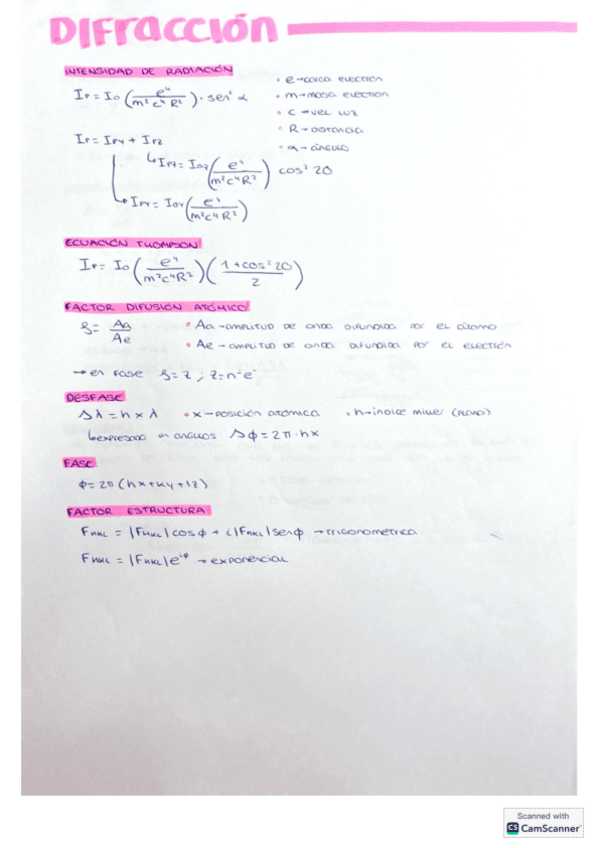 DIFracción
INTENSIDAD DE RADIACIÓN
Ip = Io (e⁴ / m² c⁴ R²) · sen² α
• e → carga electrón
• m → masa electrón
• c → vel luz
• R → distancia
• α → ángulo
Ip = Ipy + Ipz
↳ Ipz = Ioz (e⁴ / m² c⁴ R²) cos² 2θ
↳ Ipy = Ioy (e⁴ / m² c⁴ R²)
ECUACIÓN THOMPSON
Ip = Io (e⁴ / m² c⁴ R²) (1 + cos² 2θ / 2)
FACTOR DIFUSIÓN ATÓMICO
f = Aa / Ae
• Aa → amplitud de onda difundida por el átomo
• Ae → amplitud de onda difundida por el electrón
→ en fase f = Z ; Z = nº e⁻
DESFASE
Δλ = h x λ • x → posición atómica • h → índice miller (plano)
↳ expresado en ángulos Δϕ = 2π · hx
FASE
ϕ = 2π (hx + ky + lz)
FACTOR ESTRUCTURA
FHKL = |FHKL| cos ϕ + i |FHKL| sen ϕ → trigonométrica
FHKL = |FHKL| e^iϕ → exponencial
Scanned with
CS CamScanner